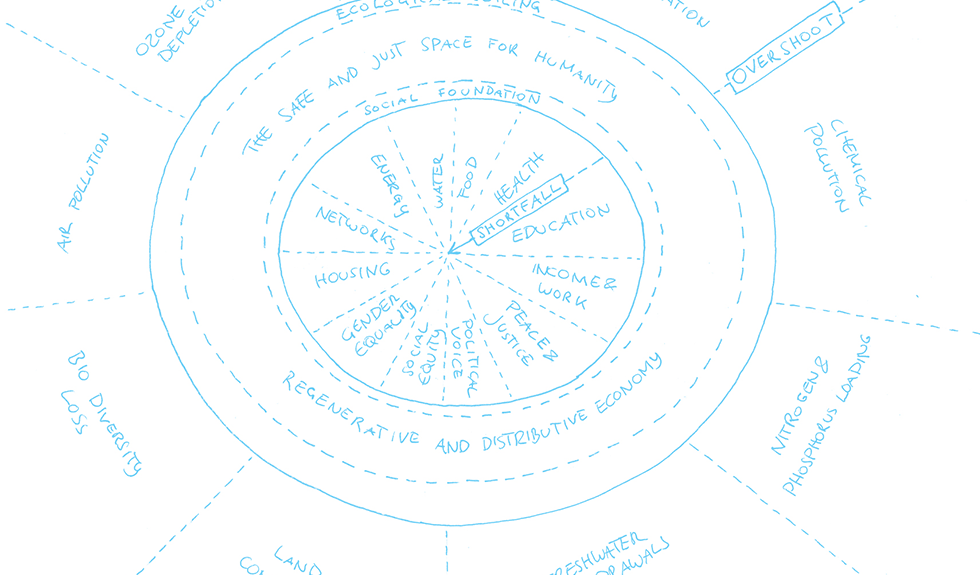 OZONE
DEPLETION
OVERSHOOT
THE SAFE AND JUST SPACE FOR HUMANITY
SOCIAL FOUNDATION
ENERGY
WATER
FOOD
HEALTH
SHORTFALL
EDUCATION
NETWORKS
HOUSING
INCOME &
WORK
GENDER
EQUALITY
SOCIAL
EQUITY
POLITICAL
VOICE
PEACE &
JUSTICE
REGENERATIVE AND DISTRIBUTIVE ECONOMY
AIR POLLUTION
CHEMICAL
POLLUTION
BIO DIVERSITY
LOSS
NITROGEN &
PHOSPHORUS LOADING
LAND